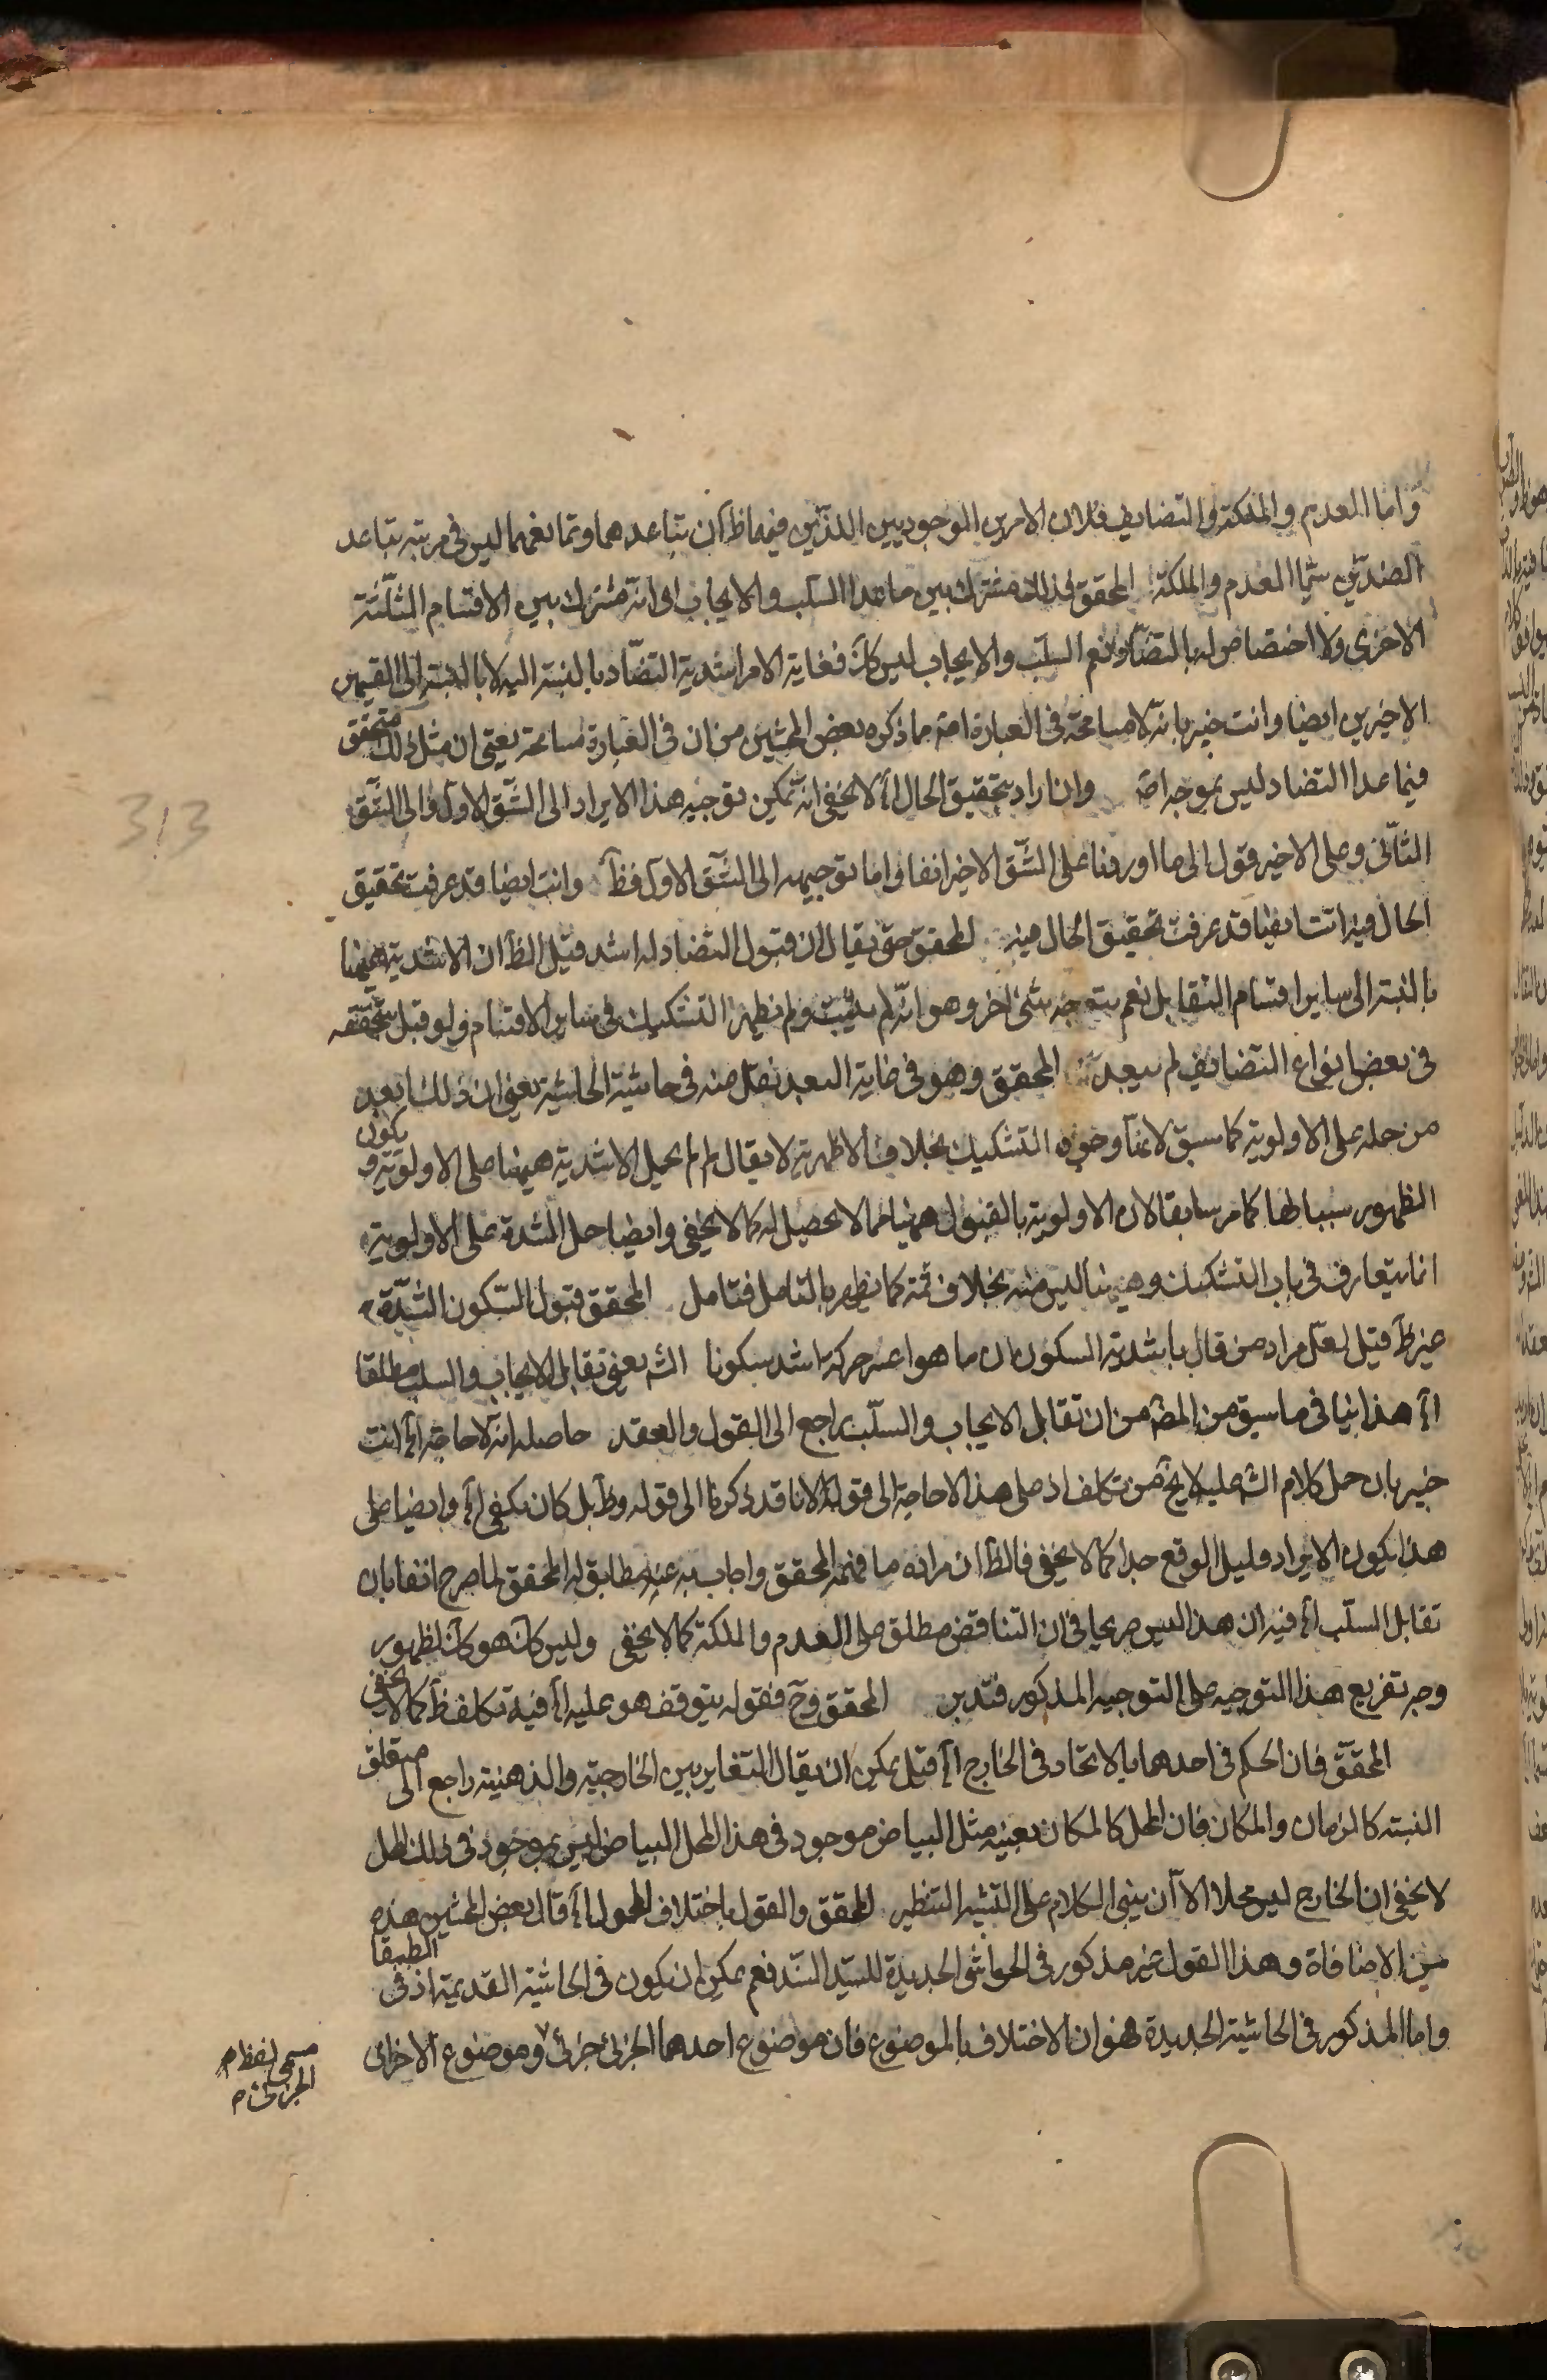 واما العدم والملكة والتضايف فلان الامرين الوجوديين اللذين فيهما ظ ان تباعدهما وتمانعهما ليس في مرتبة تباعد
الضدين سيما العدم والملكة المحقق لذلك مشترك بين ما عدا السلب والايجاب اى انه مشترك بين الاقسام الثلثة
الاخرى ولا اختصاص له بالتضاد ونعم السلب والايجاب ليس كك فغاية الامر اشدية التضاد بالنسبة اليه لا بالنسبة الى القسمين
الاخيرين ايضا وانت خبير بانه لا مسامحة في العبارة اصة ما ذكره بعض المحشين من ان في العبارة مسامحة يعني ان مثل ذلك متحقق
فيما عدا التضاد ليس بموجه اصة وان اراد بتحقيق الحال اه لا يخفى انه يمكن توجيه هذا الايراد الى الشق الاول والى الشق
الثاني وعلى الاخير قول الى ما اوردنا على الشق الاخير انفا واما توجيهه الى الشق الاول فظ وانت ايضا قد عرفت تحقيق
الحال فيه انت ايضا قد عرفت تحقيق الحال فيه المحقق حتى يقال ان قبول التضاد له اشد قيل الظ ان الاشدية ههنا
بالنسبة الى ساير اقسام التقابل نعم يتوجه شئ اخر وهو انه لم يثبت ولم يظهر التشكيك في ساير الاقسام ولو قيل بتحققه
في بعض انواع التضايف لم يبعد المحقق وهو في غاية البعد نقل منه في حاشية الحاشية يعني ان ذلك ابعد
من حمله على الاولوية كما سبق لانها وجوه التشكيك بخلاف الاظهرية لا يقال لم لم يحمل الاشدية ههنا على الاولوية ويكون
الظهور سببا لها كما مر سابقا لان الاولوية بالقبول ههنا مما لا يحصل له كما لا يخفى وايضا حمل الشدة على الاولوية
انما يتعارف في باب التشكيك وههنا ليس منه بخلاف ثمة كما يظهر بالتامل فتامل المحقق قبول السكون الشدة
غير ظ قيل لعل مراد من قال باشدية السكون ان ما هو اعسر حركة اشد سكونا الشه يعني تقابل الايجاب والسلب مطلقا
اه هذا ينافي ما سبق من المصه من ان تقابل الايجاب والسلب راجع الى القول والعقد حاصله انه لا حاجة اه انت
خبير بان حمل كلام الشه عليه لا يخ من تكلف اذ على هذا لا حاجة الى قوله لانا قد ذكرنا الى قوله وظ بل كان يكفي اه وايضا على
هذا يكون الايراد قليل الوقع جدا كما لا يخفى فالظ ان مراده ما فهمه المحقق واجاب به عنه مطابق له المحقق لما صرح انفا بان
تقابل السلب اه فيه ان هذا ليس صريحا في ان التناقض مطلق على العدم والملكة كما لا يخفى وليس كك هو كك لظهور
وجه تفريع هذا التوجيه على التوجيه المذكور فتدبر المحقق وح فقوله يتوقف هو عليه اه فيه تكلف ظ كما لا يخفى
المحقق فان الحكم في احدهما بالاتحاد في الخارج اه قيل يمكن ان يقال التغاير بين الخارجية والذهنية راجع الى متعلق
النسبة كالزمان والمكان فان المحل كالمكان بعينه مثل البياض موجود في هذا المحل البياض ليس بموجود في ذلك المحل
لا يخفى ان الخارج ليس محلا الا ان يبنى الكلام على التشبيه التنظير المحقق والقول باختلاف المحمول اه قال بعض المحشين هذه
من الاضافاة وهذا القول غير مذكور في الحواشي الجديدة للسيد السند فعم يمكن ان يكون في الحاشية القديمة اذ في الطبيقا
واما المذكور في الحاشية الجديدة فهو ان الاختلاف بالموضوع فان موضوع احدهما الجزئي جزئي وموضوع الاخرى
مسمى لفظ م
الجزئي م
313